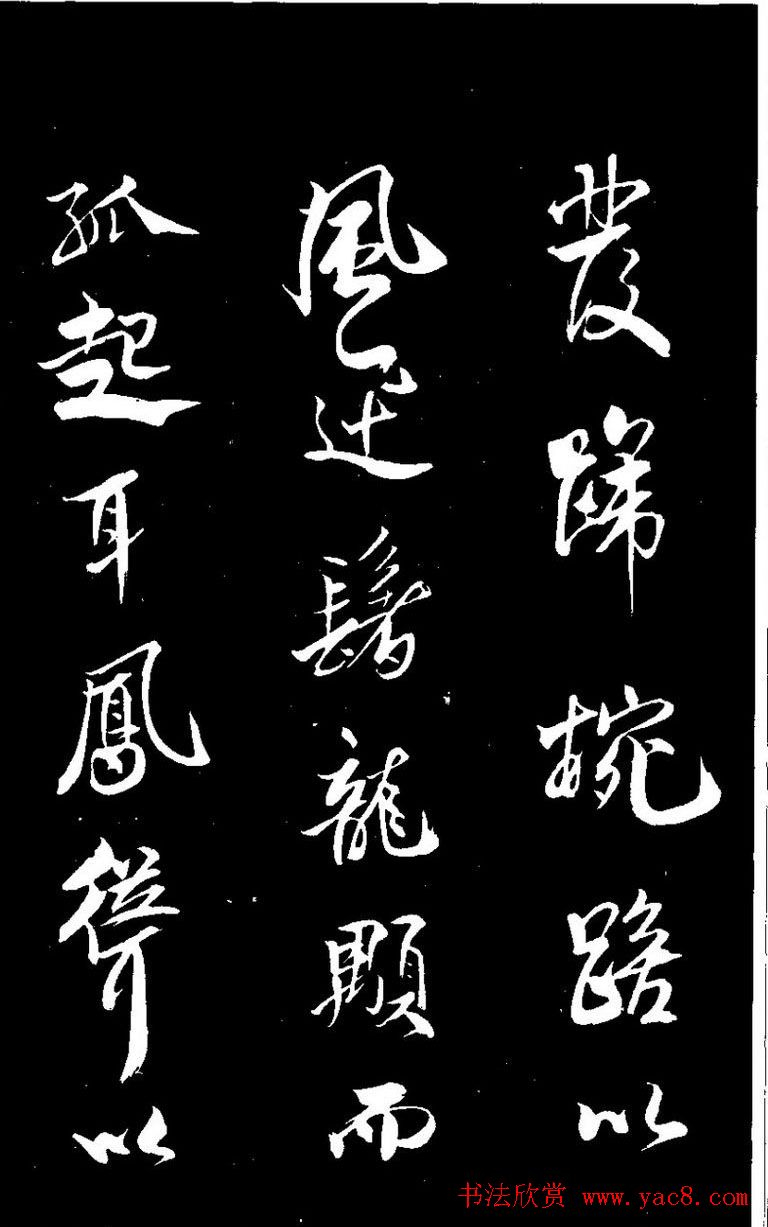 發蹄椀踣以
風迅鬐龍顒而
孤起耳鳳聳以
书法欣赏 www.yac8.com